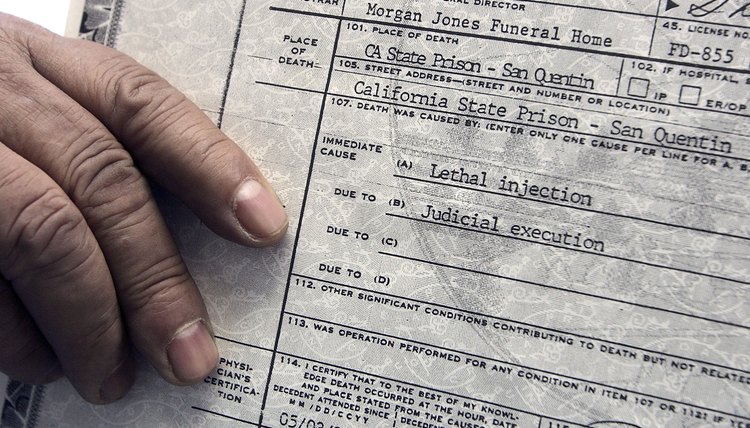 DIRECTOR
Morgan Jones Funeral Home
45. LICENSE NO
FD-855
PLACE
OF
DEATH
101. PLACE OF DEATH
CA State Prison - San Quentin
102. IF HOSPITAL
IP
ER/OP
105. STREET ADDRESS—(STREET AND NUMBER OR LOCATION)
California State Prison - San Quentin
107. DEATH WAS CAUSED BY: (ENTER ONLY ONE CAUSE PER LINE FOR A, B,
IMMEDIATE
CAUSE
(A) Lethal injection
DUE TO (B) Judicial execution
DUE TO (C)
DUE TO (D)
112. OTHER SIGNIFICANT CONDITIONS CONTRIBUTING TO DEATH BUT NOT RELATE
113. WAS OPERATION PERFORMED FOR ANY CONDITION IN ITEM 107 OR 112? IF YES
PHYSI-
CIAN'S
CERTIFICA-
TION
114. I CERTIFY THAT TO THE BEST OF MY KNOWL-
EDGE DEATH OCCURRED AT THE HOUR, DATE
AND PLACE STATED FROM THE CAUSES
DECEDENT ATTENDED SINCE
MM/DD/CCYY
DECEDENT
115